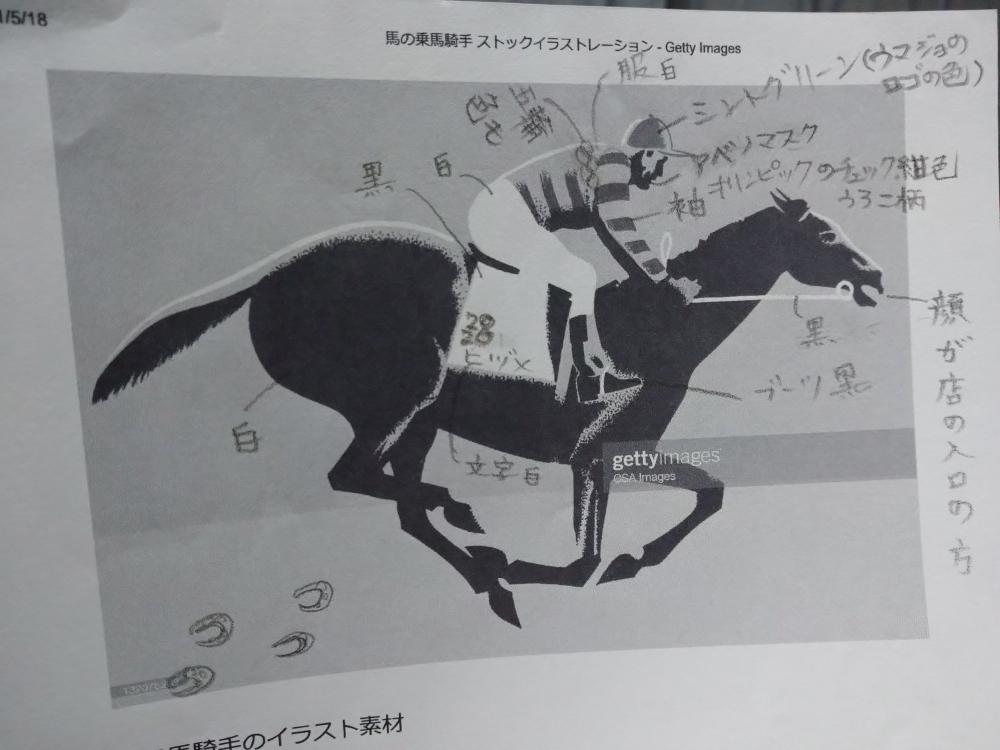 1/5/18
馬の乗馬騎手 ストックイラストレーション - Getty Images
服白
ミントグリーン(ウマジョの
ロゴの色)
アベノマスク
袖 オリンピックのチェック紺色
うろこ柄
黒
白
黒
顔が店の入口の方
28
28
ヒヅメ
ブーツ黒
白
文字白
gettyimages
CSA Images
馬騎手のイラスト素材